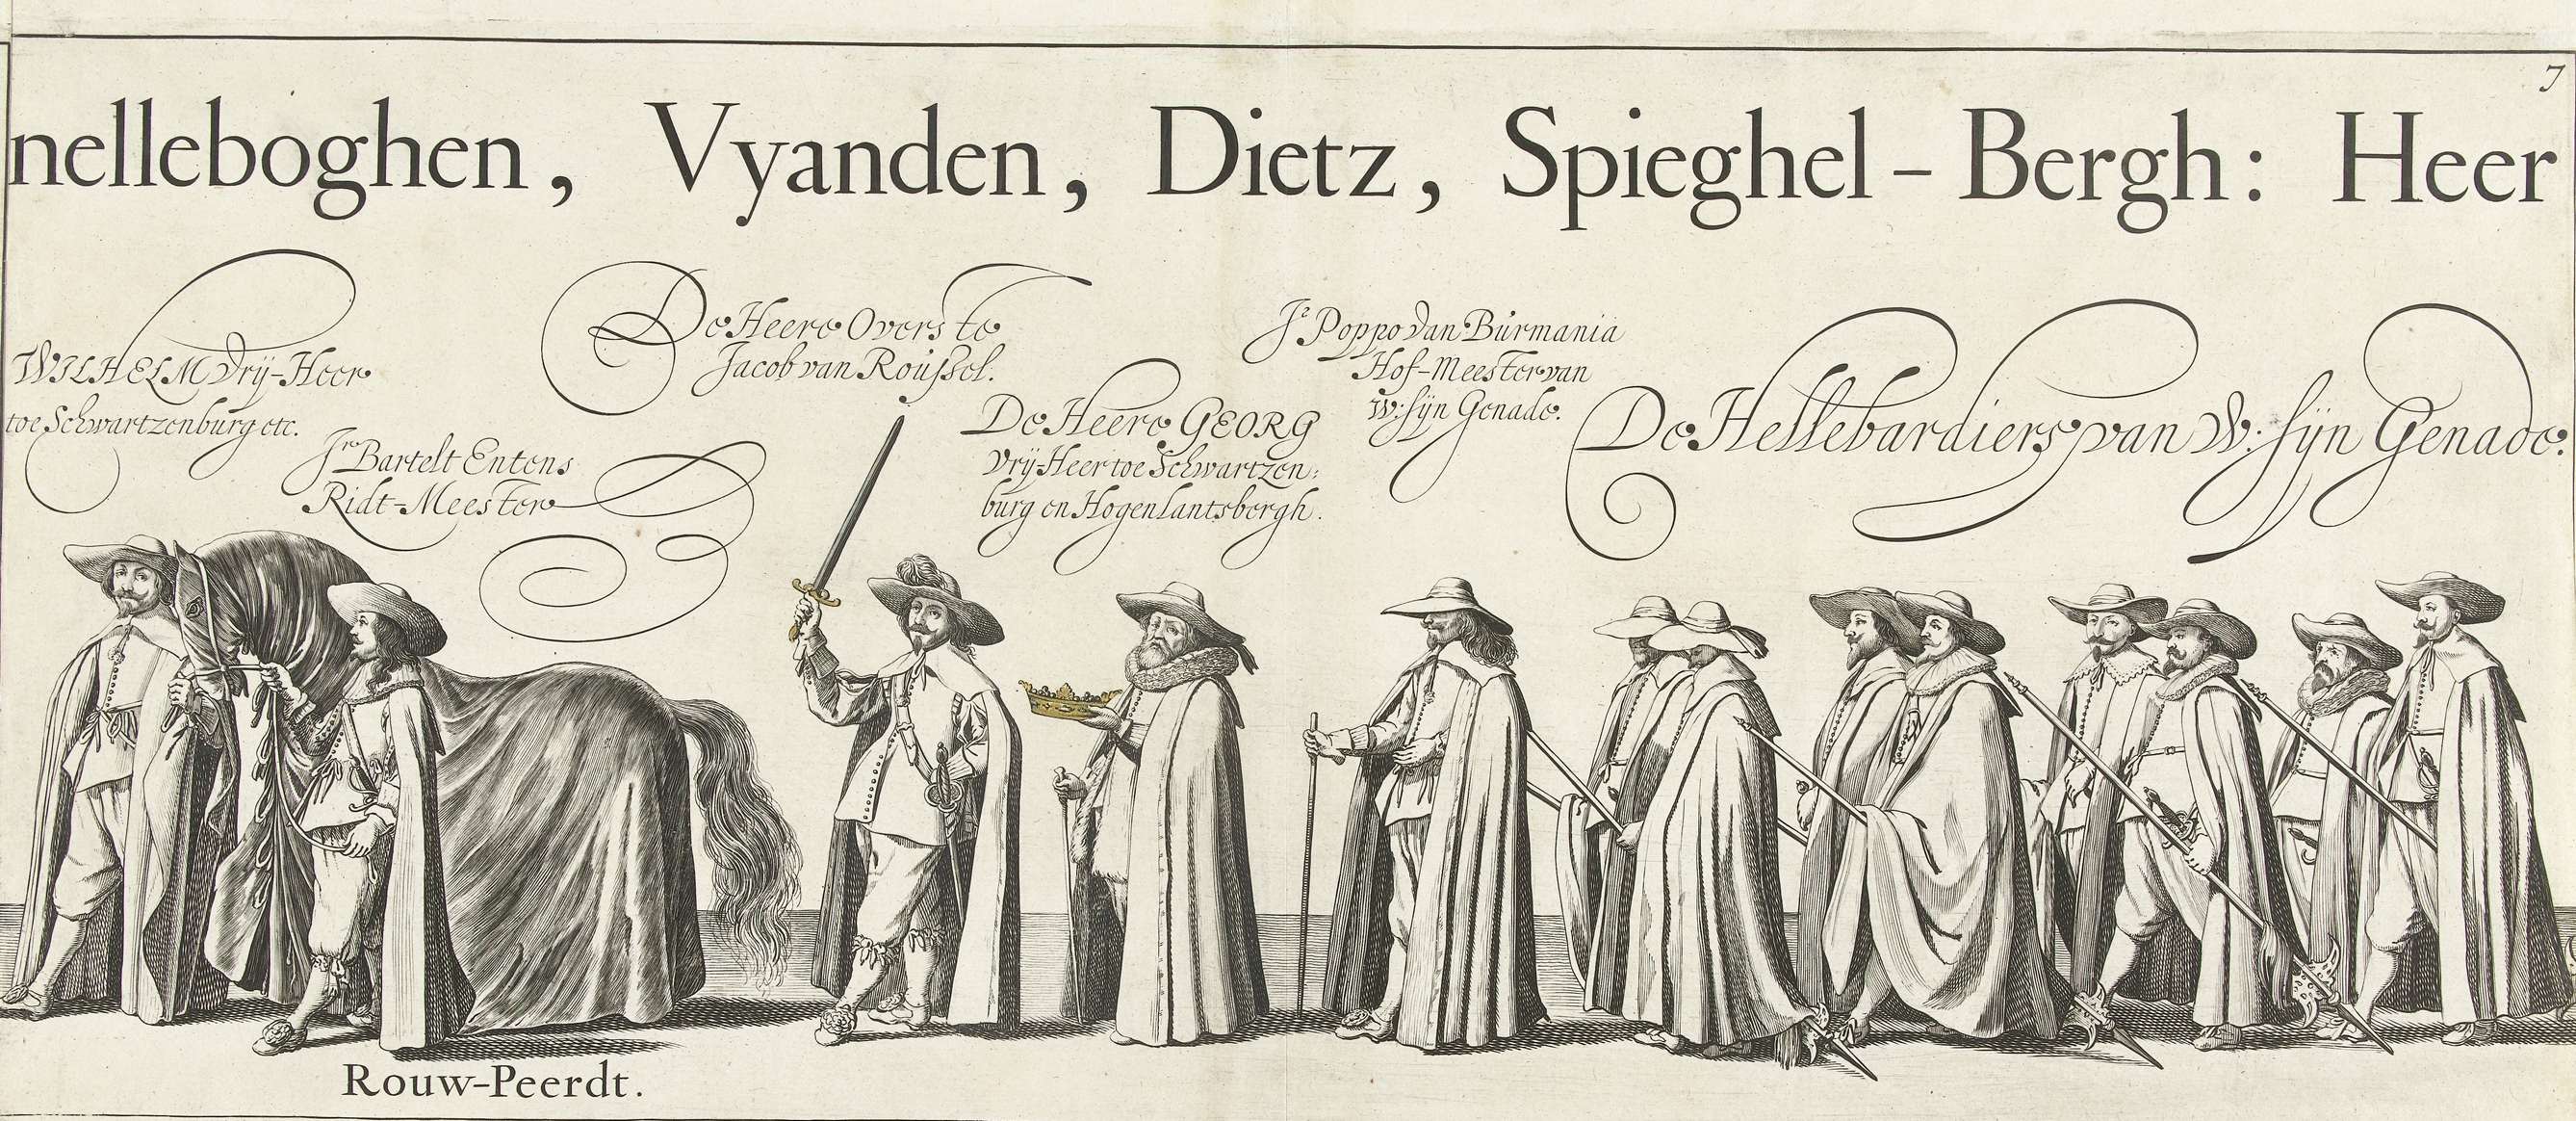 7
nelleboghen, Vyanden, Dietz, Spieghel-Bergh: Heer
WILHELM Vrÿ-Heer
toe Schwartzenburg etc.
Jr Bartelt Entens
Ridt-Meester
De Heere Overste
Jacob van Roussel.
De Heere GEORG
Vrÿ-Heer toe Schwartzen:
burg en Hogenlantsbergh.
Jr Poppo van Burmania
Hof-Meester van
W: sÿn Genade.
De Hellebardiers van W: sÿn Genade.
Rouw-Peerdt.